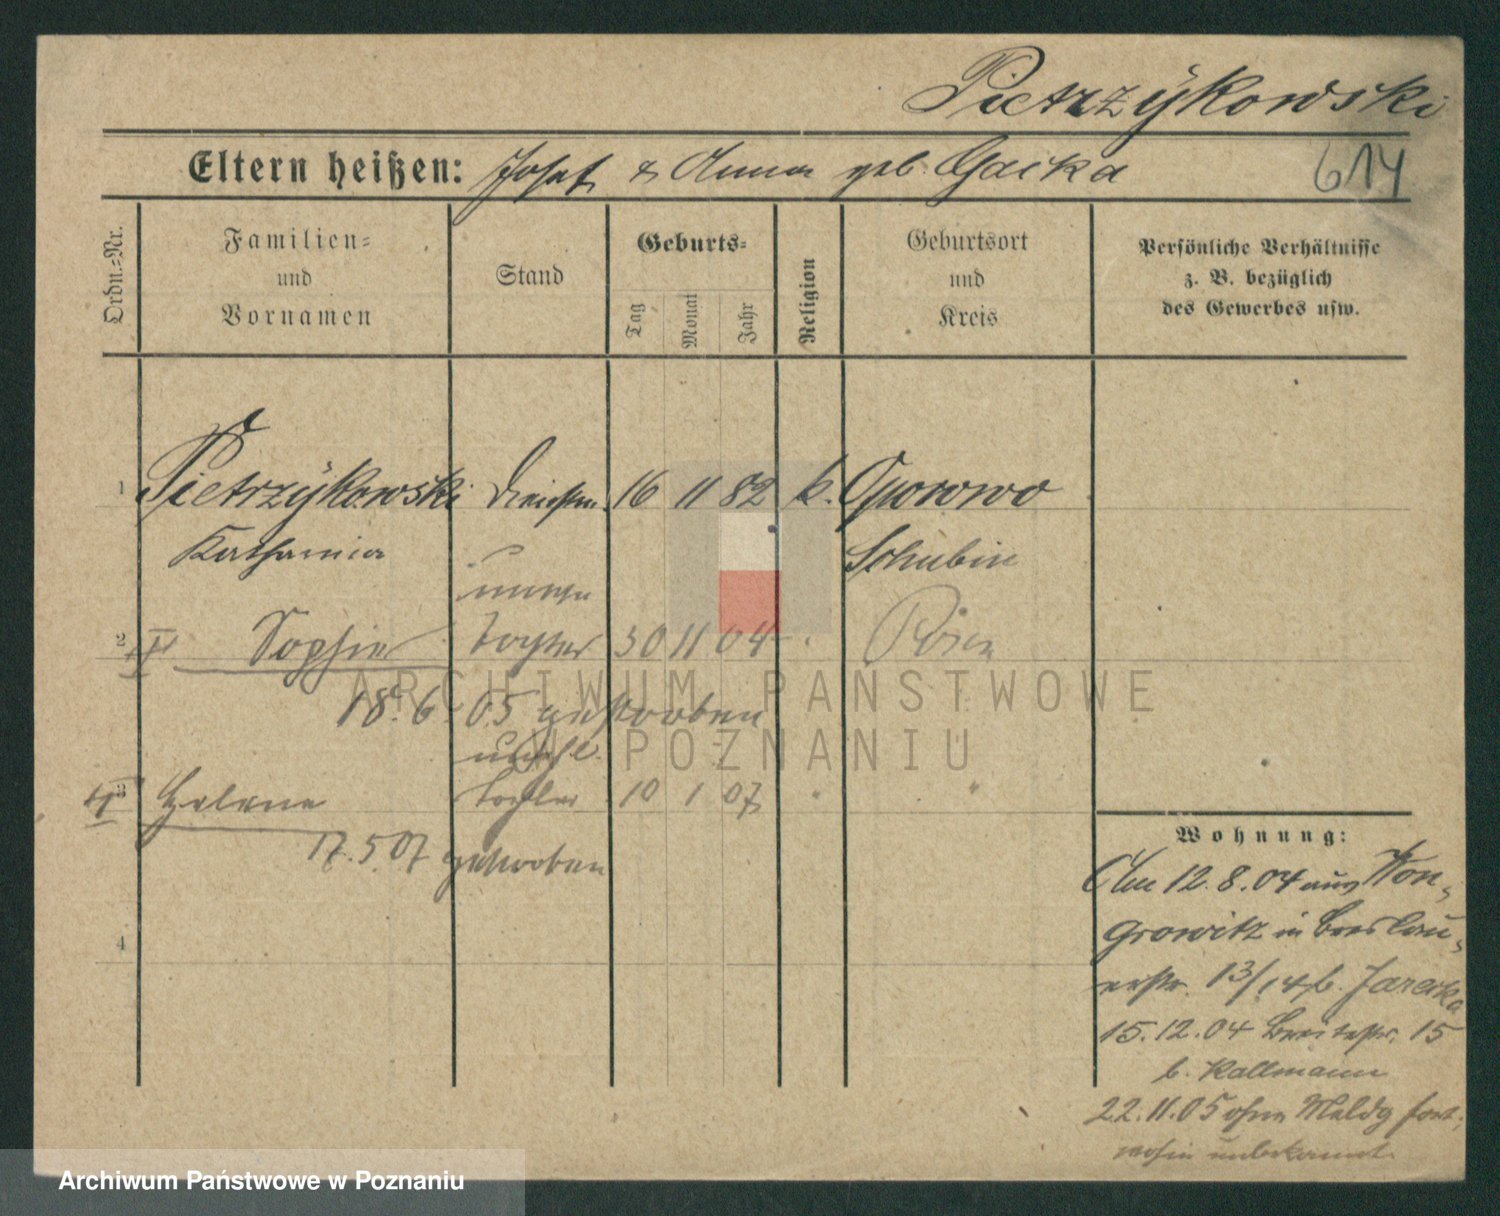 Pietrzykowski
Eltern heißen: Josef & Anna geb. Gacka
614
Ordn.=Nr.
Familien=
und
Vornamen
Stand
Geburts=
Tag
Monat
Jahr
Religion
Geburtsort
und
Kreis
Persönliche Verhältnisse
z. B. bezüglich
des Gewerbes usw.
1 Pietrzykowski 16 11 82 k. Oporowo
Katharina Schubin
unehe
2 Sophie Tochter 30 11 04 Posen
18. 6. 05 gestorben
unehl.
3 Helene Tochter 10 1 07 "
17. 5. 07 gestorben
4
Wohnung:
Am 12. 8. 04 aus Won-
growitz in Breslau-
erstr. 13/14 b. Jarecka
15. 12. 04 Breitestr. 15
b. Kallmann
22. 11. 05 ohne Meldg fort,
wohin unbekannt.
ARCHIWUM PAŃSTWOWE
W POZNANIU
Archiwum Państwowe w Poznaniu